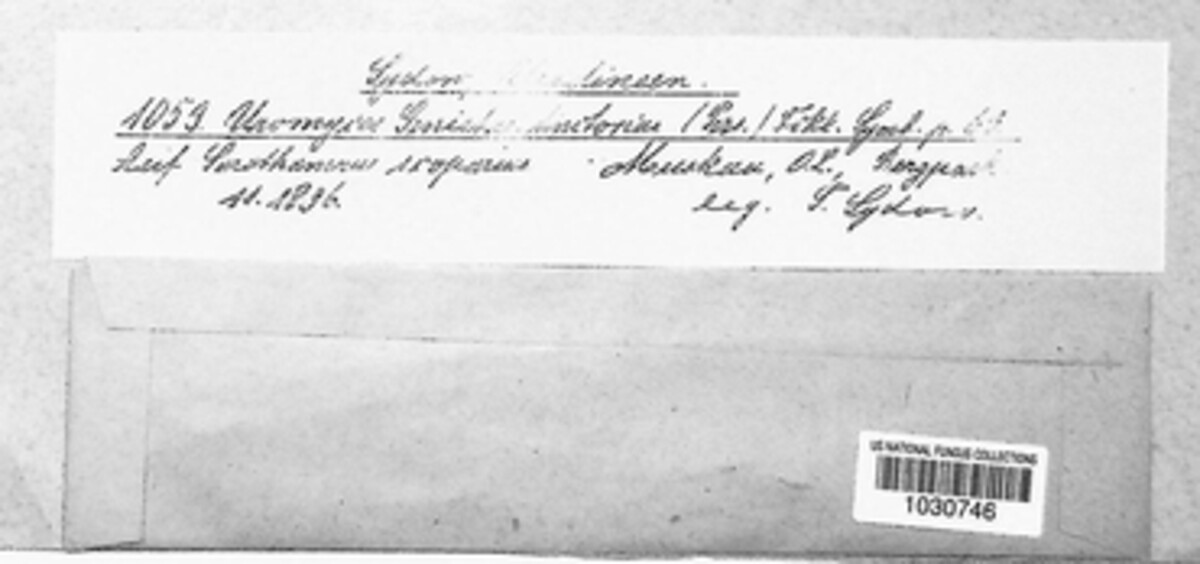 Sydow,
1059 Uromyces Genistae tinctoriae (Pers.) Fckl. Symb. p. 63
Auf Sarothamnus scoparius Muskau, O.L., Bergpark
11. 1896. leg. P. Sydow.
US NATIONAL FUNGUS COLLECTIONS
1030746